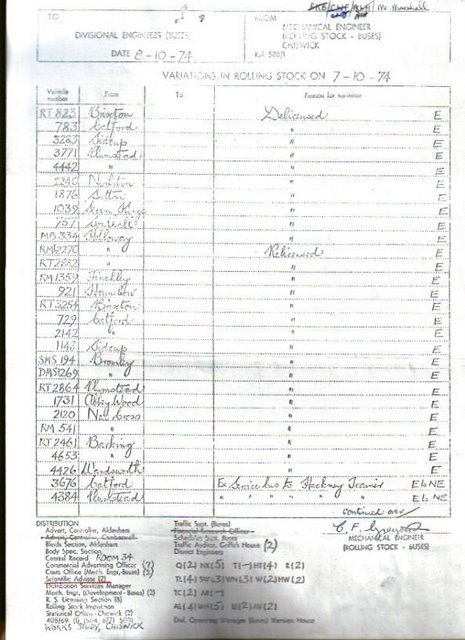 Mr Marshall
TO
DIVISIONAL ENGINEERS (BUSES)
DATE 8-10-74
FROM
MECHANICAL ENGINEER
(ROLLING STOCK - BUSES)
CHISWICK
VARIATIONS IN ROLLING STOCK ON 7-10-74
Vehicle number From To Reason for variation
RT 823 Brixton Delicensed E
783 Catford " E
3263 Sidcup " E
3771 Plumstead " E
4442 " " E
2240 " E
1876 Sutton " E
1039 Seven Kings " E
757 Southall " E
MB 334 Holloway " E
RML2270 " Relicensed E
RT2882 " " E
RM1359 Finchley " E
921 Hounslow " E
RT3254 Brixton " E
729 Catford " E
2142 " " E
1148 Sidcup " E
SMS 194 Bromley " E
DMS1269 " " E
RT 2864 Plumstead " E
1731 Abbey Wood " E
2120 New Cross " E
RM 541 " " E
RT 2461 Barking " E
4653 " " E
4426 Wandsworth " E
3676 Catford Ex Service bus to Hackney Trainer E & NE
4384 Plumstead " " " " " E & NE
continued over
MECHANICAL ENGINEER
(ROLLING STOCK - BUSES)
DISTRIBUTION
Advert. Controller, Aldenham
Advert. Controller, Camberwell
Blinds Section, Aldenham
Body Spec. Section
Central Record ROOM 34
Commercial Advertising Officer (7)
Costs Office (Mech. Engr.-Buses) (2)
Scientific Adviser (2)
Distribution Services Manager
Mech. Engr. (Development - Buses) (2)
R. S. Licensing Section (8)
Rolling Stock Inspection
Statistical Office - Chiswick (2)
WORKS STUDY, CHISWICK
Traffic Supt. (Buses)
Schedules Supt. (Buses)
Traffic Auditor, Griffith House (2)
District Engineers
Divl. Operating Manager (Buses) Mansion House